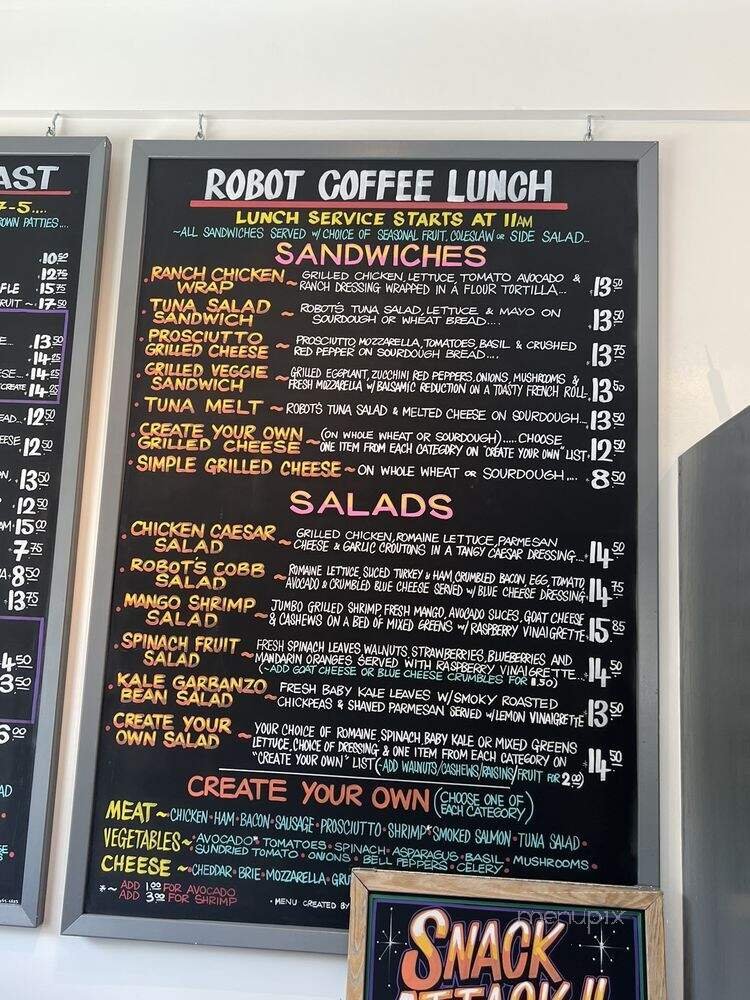 AST
7-5....
OWN PATTIES....
10.00
12.75
FLE ~ 15.75
FRUIT ~ 17.50
E... .13.50
.14.25
ESE... .14.75
CREATE .14.25
EAD... .12.50
EESE .12.50
.13.50
.12.50
AM .15.00
.7.75
.8.50
.13.75
4.50
3.50
6.00
AD
ROBOT COFFEE LUNCH
LUNCH SERVICE STARTS AT 11AM
~ALL SANDWICHES SERVED w/ CHOICE OF SEASONAL FRUIT, COLESLAW OR SIDE SALAD...
SANDWICHES
RANCH CHICKEN WRAP ~ GRILLED CHICKEN, LETTUCE, TOMATO AVOCADO &
RANCH DRESSING WRAPPED IN A FLOUR TORTILLA... .13.50
TUNA SALAD SANDWICH ~ ROBOT'S TUNA SALAD, LETTUCE & MAYO ON
SOURDOUGH OR WHEAT BREAD.... .13.50
PROSCIUTTO GRILLED CHEESE ~ PROSCIUTTO, MOZZARELLA, TOMATOES, BASIL & CRUSHED
RED PEPPER ON SOURDOUGH BREAD.... .13.75
GRILLED VEGGIE SANDWICH ~ GRILLED EGGPLANT, ZUCCHINI RED PEPPERS, ONIONS, MUSHROOMS &
FRESH MOZZARELLA w/ BALSAMIC REDUCTION ON A TOASTY FRENCH ROLL. .13.50
TUNA MELT ~ ROBOT'S TUNA SALAD & MELTED CHEESE ON SOURDOUGH... .13.50
CREATE YOUR OWN GRILLED CHEESE ~ (ON WHOLE WHEAT OR SOURDOUGH)..... CHOOSE
ONE ITEM FROM EACH CATEGORY ON "CREATE YOUR OWN" LIST. 12.50
SIMPLE GRILLED CHEESE ~ ON WHOLE WHEAT OR SOURDOUGH.... 8.50
SALADS
CHICKEN CAESAR SALAD ~ GRILLED CHICKEN, ROMAINE LETTUCE, PARMESAN
CHEESE & GARLIC CROUTONS IN A TANGY CAESAR DRESSING.... 14.50
ROBOT'S COBB SALAD ~ ROMAINE LETTUCE, SLICED TURKEY & HAM, CRUMBLED BACON, EGG, TOMATO,
AVOCADO & CRUMBLED BLUE CHEESE SERVED w/ BLUE CHEESE DRESSING. 14.75
MANGO SHRIMP SALAD ~ JUMBO GRILLED SHRIMP, FRESH MANGO, AVOCADO SLICES, GOAT CHEESE
& CASHEWS ON A BED OF MIXED GREENS w/ RASPBERRY VINAIGRETTE. 15.85
SPINACH FRUIT SALAD ~ FRESH SPINACH LEAVES, WALNUTS, STRAWBERRIES, BLUEBERRIES AND
MANDARIN ORANGES SERVED WITH RASPBERRY VINAIGRETTE... 14.50
(~ADD GOAT CHEESE OR BLUE CHEESE CRUMBLES FOR 1.50)
KALE GARBANZO BEAN SALAD ~ FRESH BABY KALE LEAVES W/ SMOKY ROASTED
CHICKPEAS & SHAVED PARMESAN SERVED w/ LEMON VINAIGRETTE 13.50
CREATE YOUR OWN SALAD ~ YOUR CHOICE OF ROMAINE, SPINACH, BABY KALE OR MIXED GREENS
LETTUCE, CHOICE OF DRESSING & ONE ITEM FROM EACH CATEGORY ON
"CREATE YOUR OWN" LIST (~ADD WALNUTS/CASHEWS/RAISINS/FRUIT FOR 2.00) 14.50
CREATE YOUR OWN (CHOOSE ONE OF EACH CATEGORY)
MEAT ~ CHICKEN • HAM • BACON • SAUSAGE • PROSCIUTTO • SHRIMP* • SMOKED SALMON • TUNA SALAD •
VEGETABLES ~ AVOCADO* • TOMATOES • SPINACH • ASPARAGUS • BASIL • MUSHROOMS •
SUNDRIED TOMATO • ONIONS • BELL PEPPERS • CELERY •
CHEESE ~ CHEDDAR • BRIE • MOZZARELLA • GRU
*~ ADD 1.00 FOR AVOCADO
ADD 3.00 FOR SHRIMP
• MENU CREATED BY
SNACK
ATTACK!!
menupix